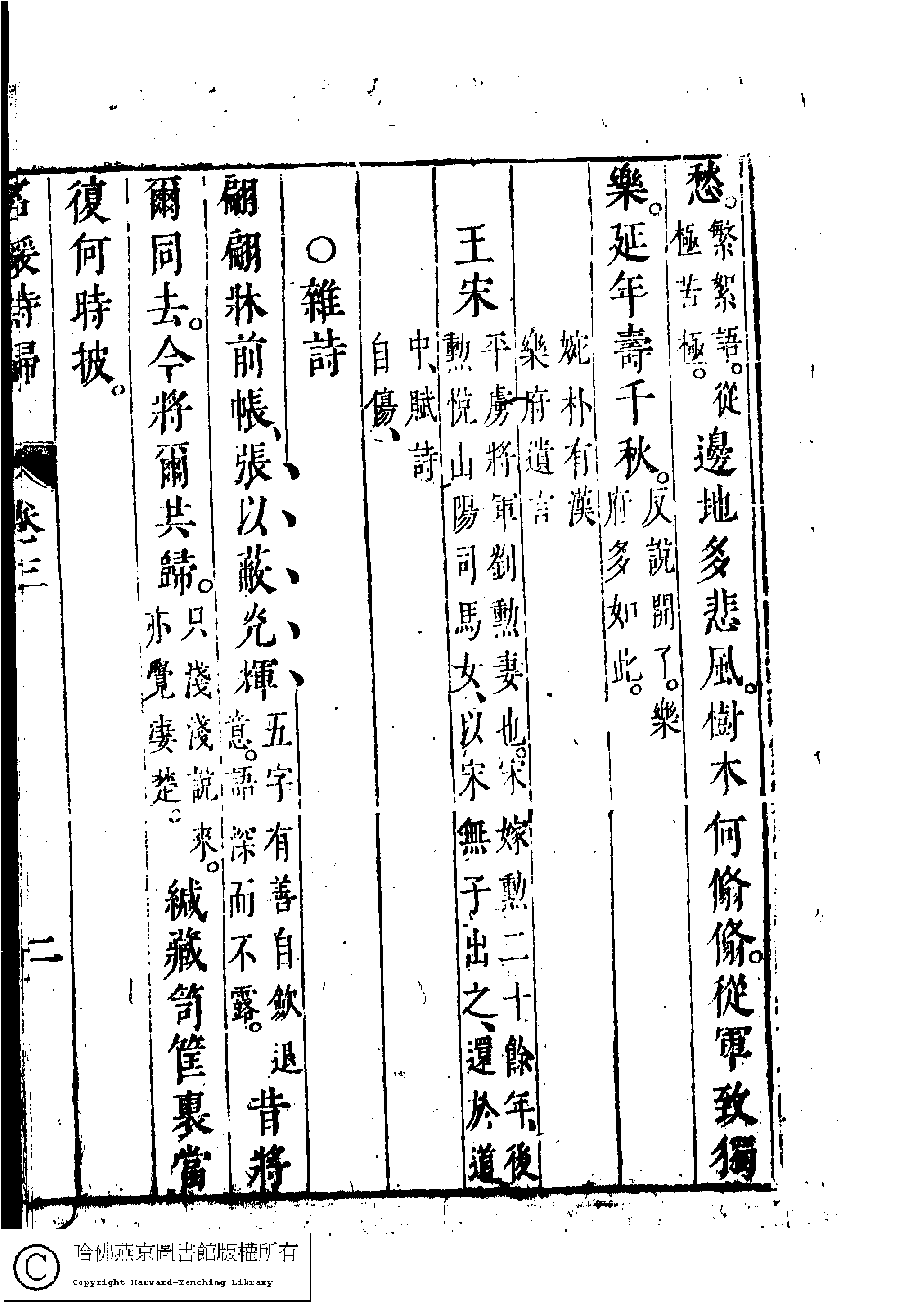 愁。繁絮語。從極苦極。邊地多悲風。樹木何脩脩。從軍致獨
樂。延年壽千秋。反說開了。樂府多如此。
婉朴有漢樂府遺言
王宋 平虜將軍劉勳妻也。宋嫁勳二十餘年、後勳悅山陽司馬女、以宋無子出之、還於道
中、賦詩自傷、
○雜詩
翩翩牀前帳、張以蔽光輝、五字有善自斂退意。語深而不露。昔將
爾同去。今將爾共歸。只淺淺說來。亦覺凄楚。緘藏笥筐裏當
復何時披。
名媛詩歸 卷三 二
哈佛燕京圖書館版權所有
Copyright Harvard-Yenching Library